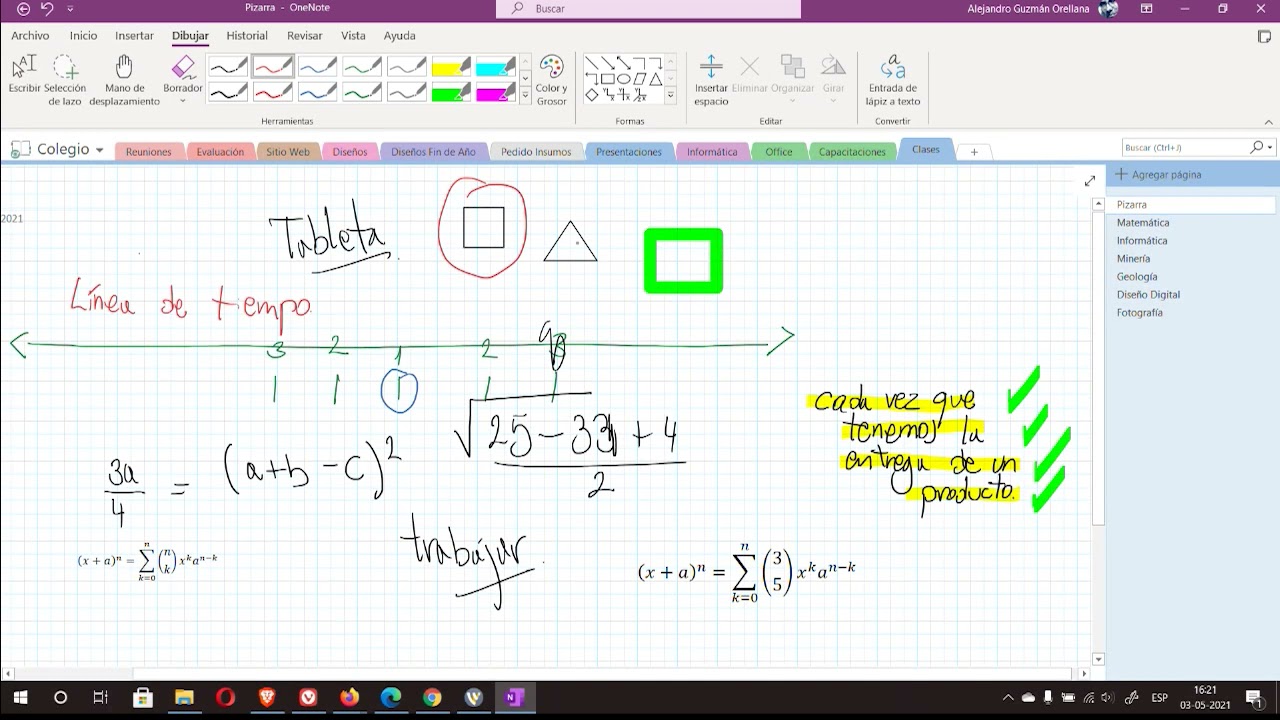 Pizarra - OneNote
Buscar
Alejandro Guzmán Orellana
Archivo Inicio Insertar Dibujar Historial Revisar Vista Ayuda
Escribir Selección de lazo Mano de desplazamiento Borrador Color y Grosor Insertar espacio Eliminar Organizar Girar Entrada de lápiz a texto
Herramientas Formas Editar Convertir
Colegio Reuniones Evaluación Sitio Web Diseños Diseños Fin de Año Pedido Insumos Presentaciones Informática Office Capacitaciones Clases +
Buscar (Ctrl+J)
Agregar página
Pizarra
Matemática
Informática
Minería
Geología
Diseño Digital
Fotografía
2021
Tableta
Línea de tiempo
3 2 1 2
1 1 1 1 1
cada vez que
tenemos la
entrega de un
producto.
3a/4 = (a+b-c)²
trabajar
(x + a)ⁿ = ∑ₖ₌₀ⁿ (n k) xᵏaⁿ⁻ᵏ
(x + a)ⁿ = ∑ₖ₌₀ⁿ (3 5) xᵏaⁿ⁻ᵏ
ESP
16:21
03-05-2021